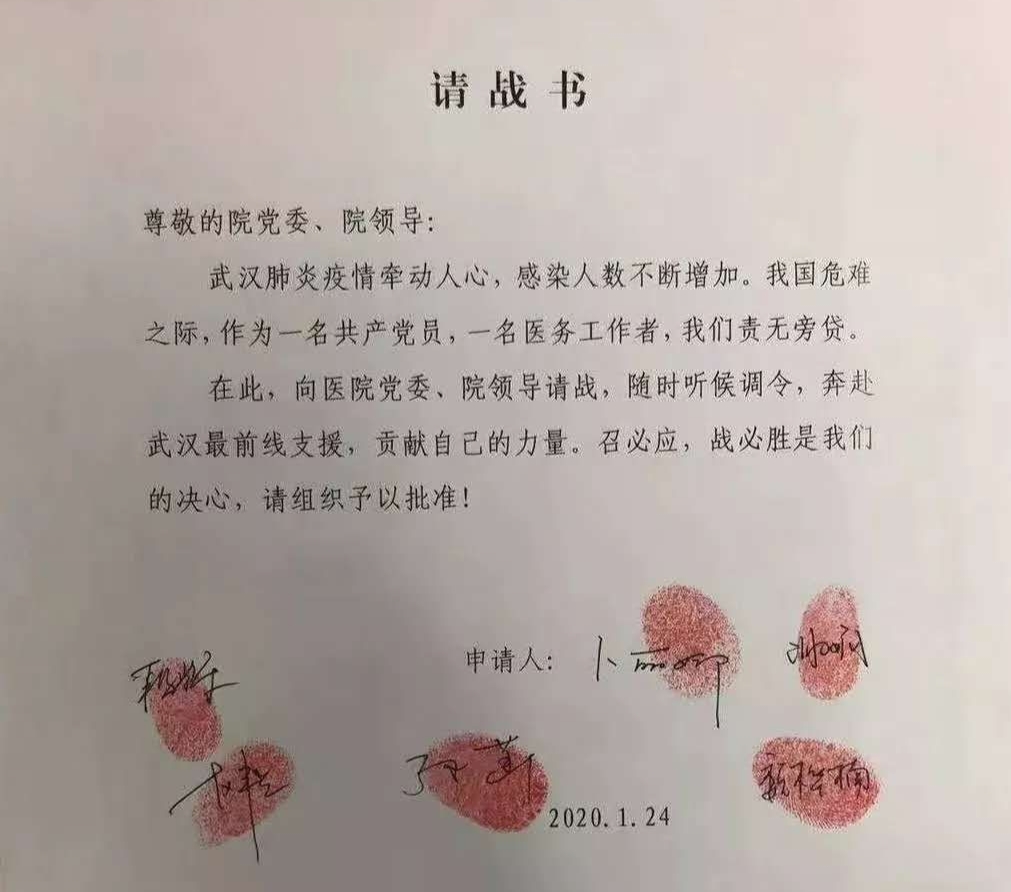 请战书
尊敬的院党委、院领导:
武汉肺炎疫情牵动人心，感染人数不断增加。我国危难
之际，作为一名共产党员，一名医务工作者，我们责无旁贷。
在此，向医院党委、院领导请战，随时听候调令，奔赴
武汉最前线支援，贡献自己的力量。召必应，战必胜是我们
的决心，请组织予以批准！
申请人：
2020.1.24